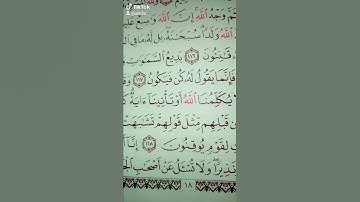 TikTok
ـثَمَّ وَجْهُ ٱللَّهِ إِنَّ ٱللَّهَ وَٰسِعٌ عَلِيـ
ٱللَّهُ وَلَدًا سُبْحَٰنَهُۥ بَل لَّهُۥ مَا فِى ٱلـ
قَٰنِتُونَ ١١٦ بَدِيعُ ٱلسَّمَٰوَٰتِ
فَإِنَّمَا يَقُولُ لَهُۥ كُن فَيَكُونُ ١١٧
يُكَلِّمُنَا ٱللَّهُ أَوْ تَأْتِينَآ ءَايَةٌ كَـ
مِن قَبْلِهِم مِّثْلَ قَوْلِهِمْ تَشَٰبَهَتْ
لِقَوْمٍ يُوقِنُونَ ١١٨ إِنَّآ
نَذِيرًا وَلَا تُسْـَٔلُ عَنْ أَصْحَٰبِ ٱلْجَـ
١٨